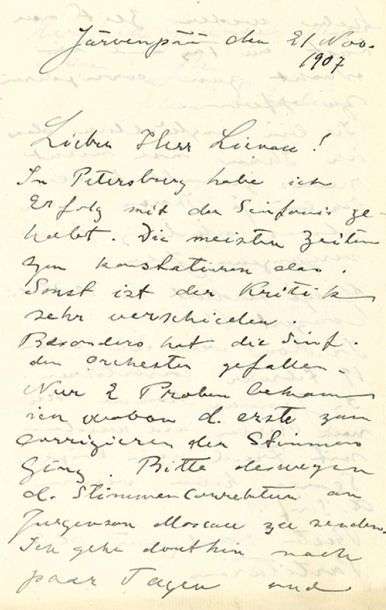 Järvenpää den 21 Nov.
1907
Lieber Herr Lienau!
In Petersburg habe ich
Erfolg mit der Sinfonie ge-
habt. Die meisten Zeitun
gen konstatieren das.
Sonst ist der Kritik
sehr verschieden.
Besonders hat die Sinf.
den Orchester gefallen.
Nur 2 Proben bekam
ich wovon d. erste zum
Corrigieren der Stimmen
ging. Bitte deswegen
d. Stimmencorrektur an
Jurgenson Moscau zu senden.
Ich gehe dorthin nach
paar Tagen und